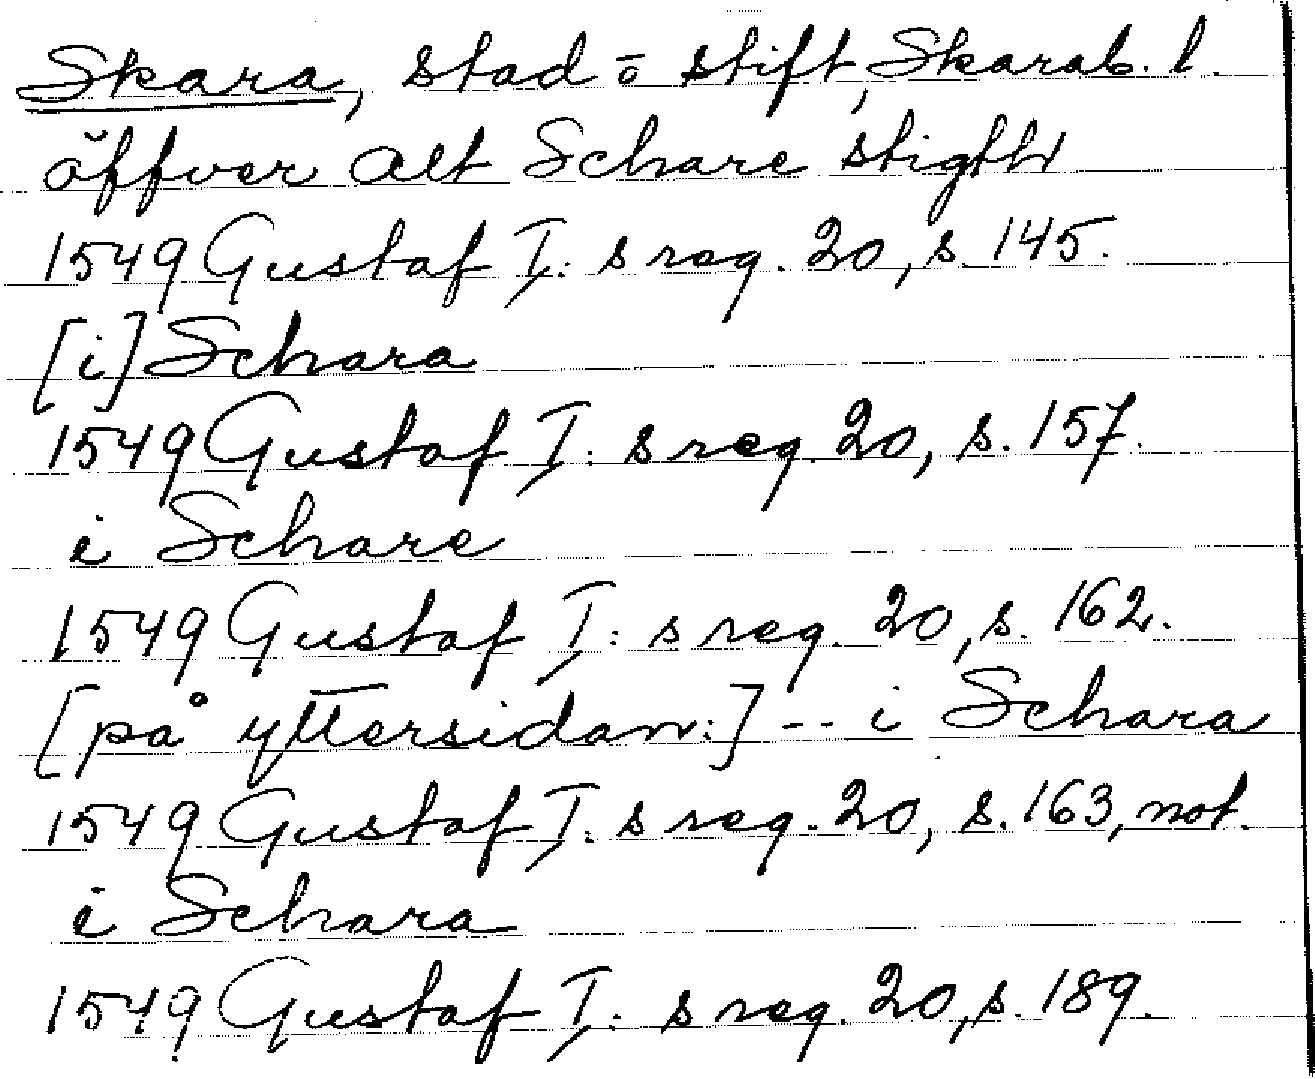 Skara, stad o stift, Skarab. l.
öffver alt Schare stigtt
1549 Gustaf I: s reg. 20, s. 145.
[i] Schara
1549 Gustaf I: s reg. 20, s. 157.
i Schare
1549 Gustaf I: s reg. 20, s. 162.
[på yttersidan:] -- i Schara
1549 Gustaf I: s reg. 20, s. 163, not.
i Schara
1549 Gustaf I: s reg. 20, s. 189.